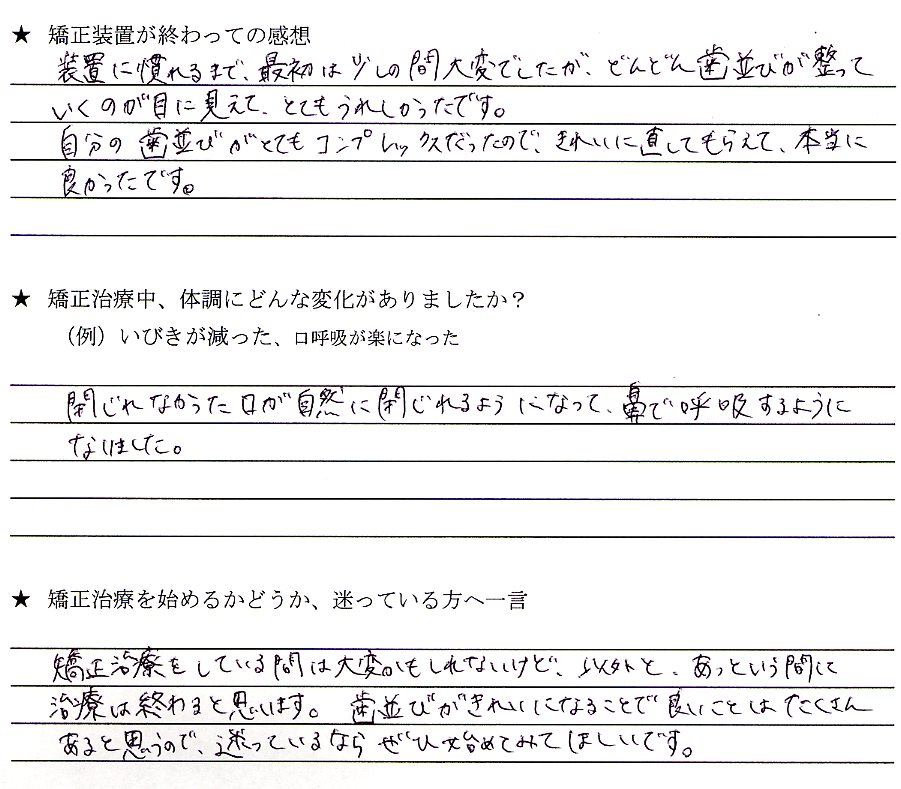 ★ 矯正装置が終わっての感想
装置に慣れるまで、最初は少しの間大変でしたが、どんどん歯並びが整って
いくのが目に見えて、とてもうれしかったです。
自分の歯並びがとてもコンプレックスだったので、きれいに直してもらえて、本当に
良かったです。
★ 矯正治療中、体調にどんな変化がありましたか？
（例）いびきが減った、口呼吸が楽になった
閉じれなかった口が自然に閉じれるようになって、鼻で呼吸するように
なりました。
★ 矯正治療を始めるかどうか、迷っている方へ一言
矯正治療をしている間は大変かもしれないけど、以外と、あっという間に
治療は終わると思います。歯並びがきれいになることで良いことはたくさん
あると思うので、迷っているならぜひ始めてみてほしいです。